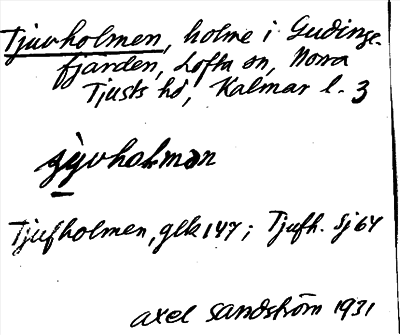 Tjuvholmen, holme i Gudinge-
fjärden, Lofta sn, Norra
Tjusts hd, Kalmar l. 3
ɕùvholəmən
Tjufholmen, glk 147; Tjufh. Sj 64
Axel Sandström 1931